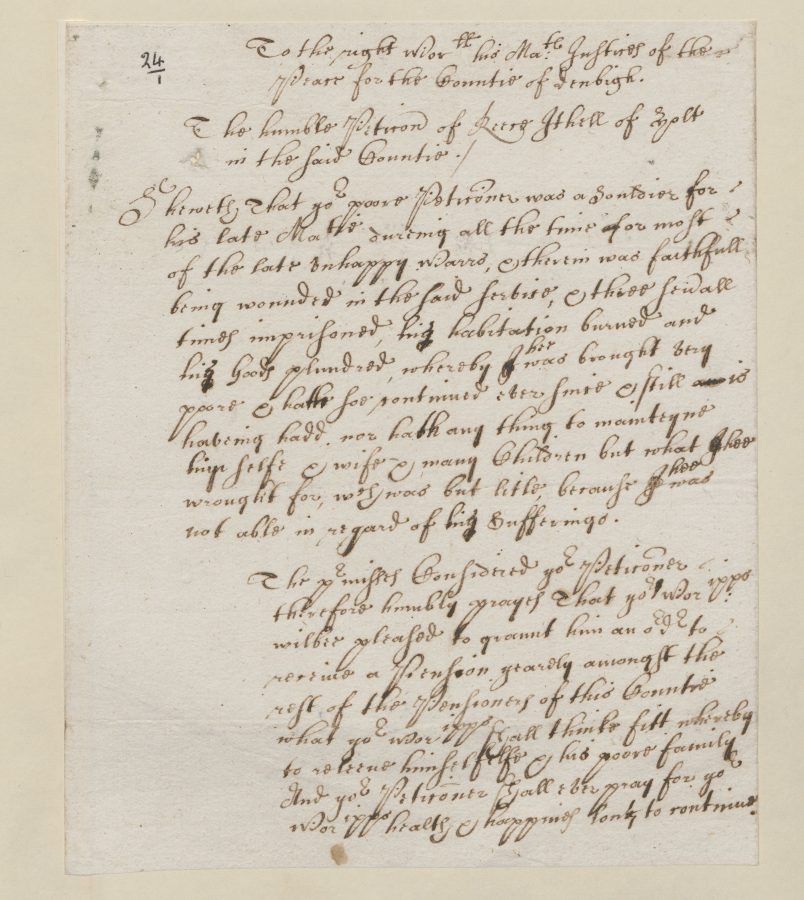 24
1
To the right Wor:ll his Ma:ts Justices of the
Peace for the Countie of Denbigh.
The humble Peticon of Reece Ithell of Holt
in the said Countie ./
Sheweth, That yor poore Peticoner was a Souldier for
his late Matie dureing all the time or for most
of the late Vnhappy Warrs, & therein was faithfull
being wounded in the said service, & three seuall
times imprisoned, his habitation burned and
his goods plundred, whereby hee was brought very
poore & hath soe continued ever since & still is
haveing hadd, nor hath any thing to mainteyne
him selfe & wife & many Children but what hee
wrought for, wch was but litle, because hee was
not able in regard of his Sufferings.
The pr misses Considered yor Peticoner
therefore humbly prayes That yor Wor:ipps
wilbee pleased to graunt him an ordr to
receive a Pension yearely amongst the
rest of the Pensioners of this Countie
what yor Wor:ipps shall thinke fitt whereby
to releeve himselfe & his poore family
And yor Peticoner shall ever pray for yor
Wor:ipps health & happines long to continue.